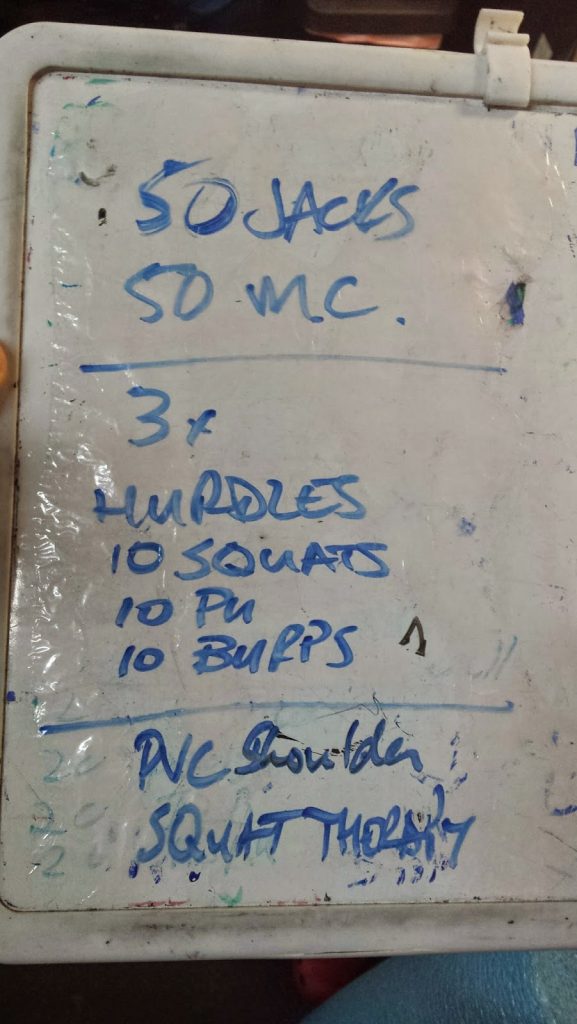 50 JACKS
50 M.C.
3x
HURDLES
10 SQUATS
10 PU
10 BURPS
PVC Shoulder
SQUAT THERAPY